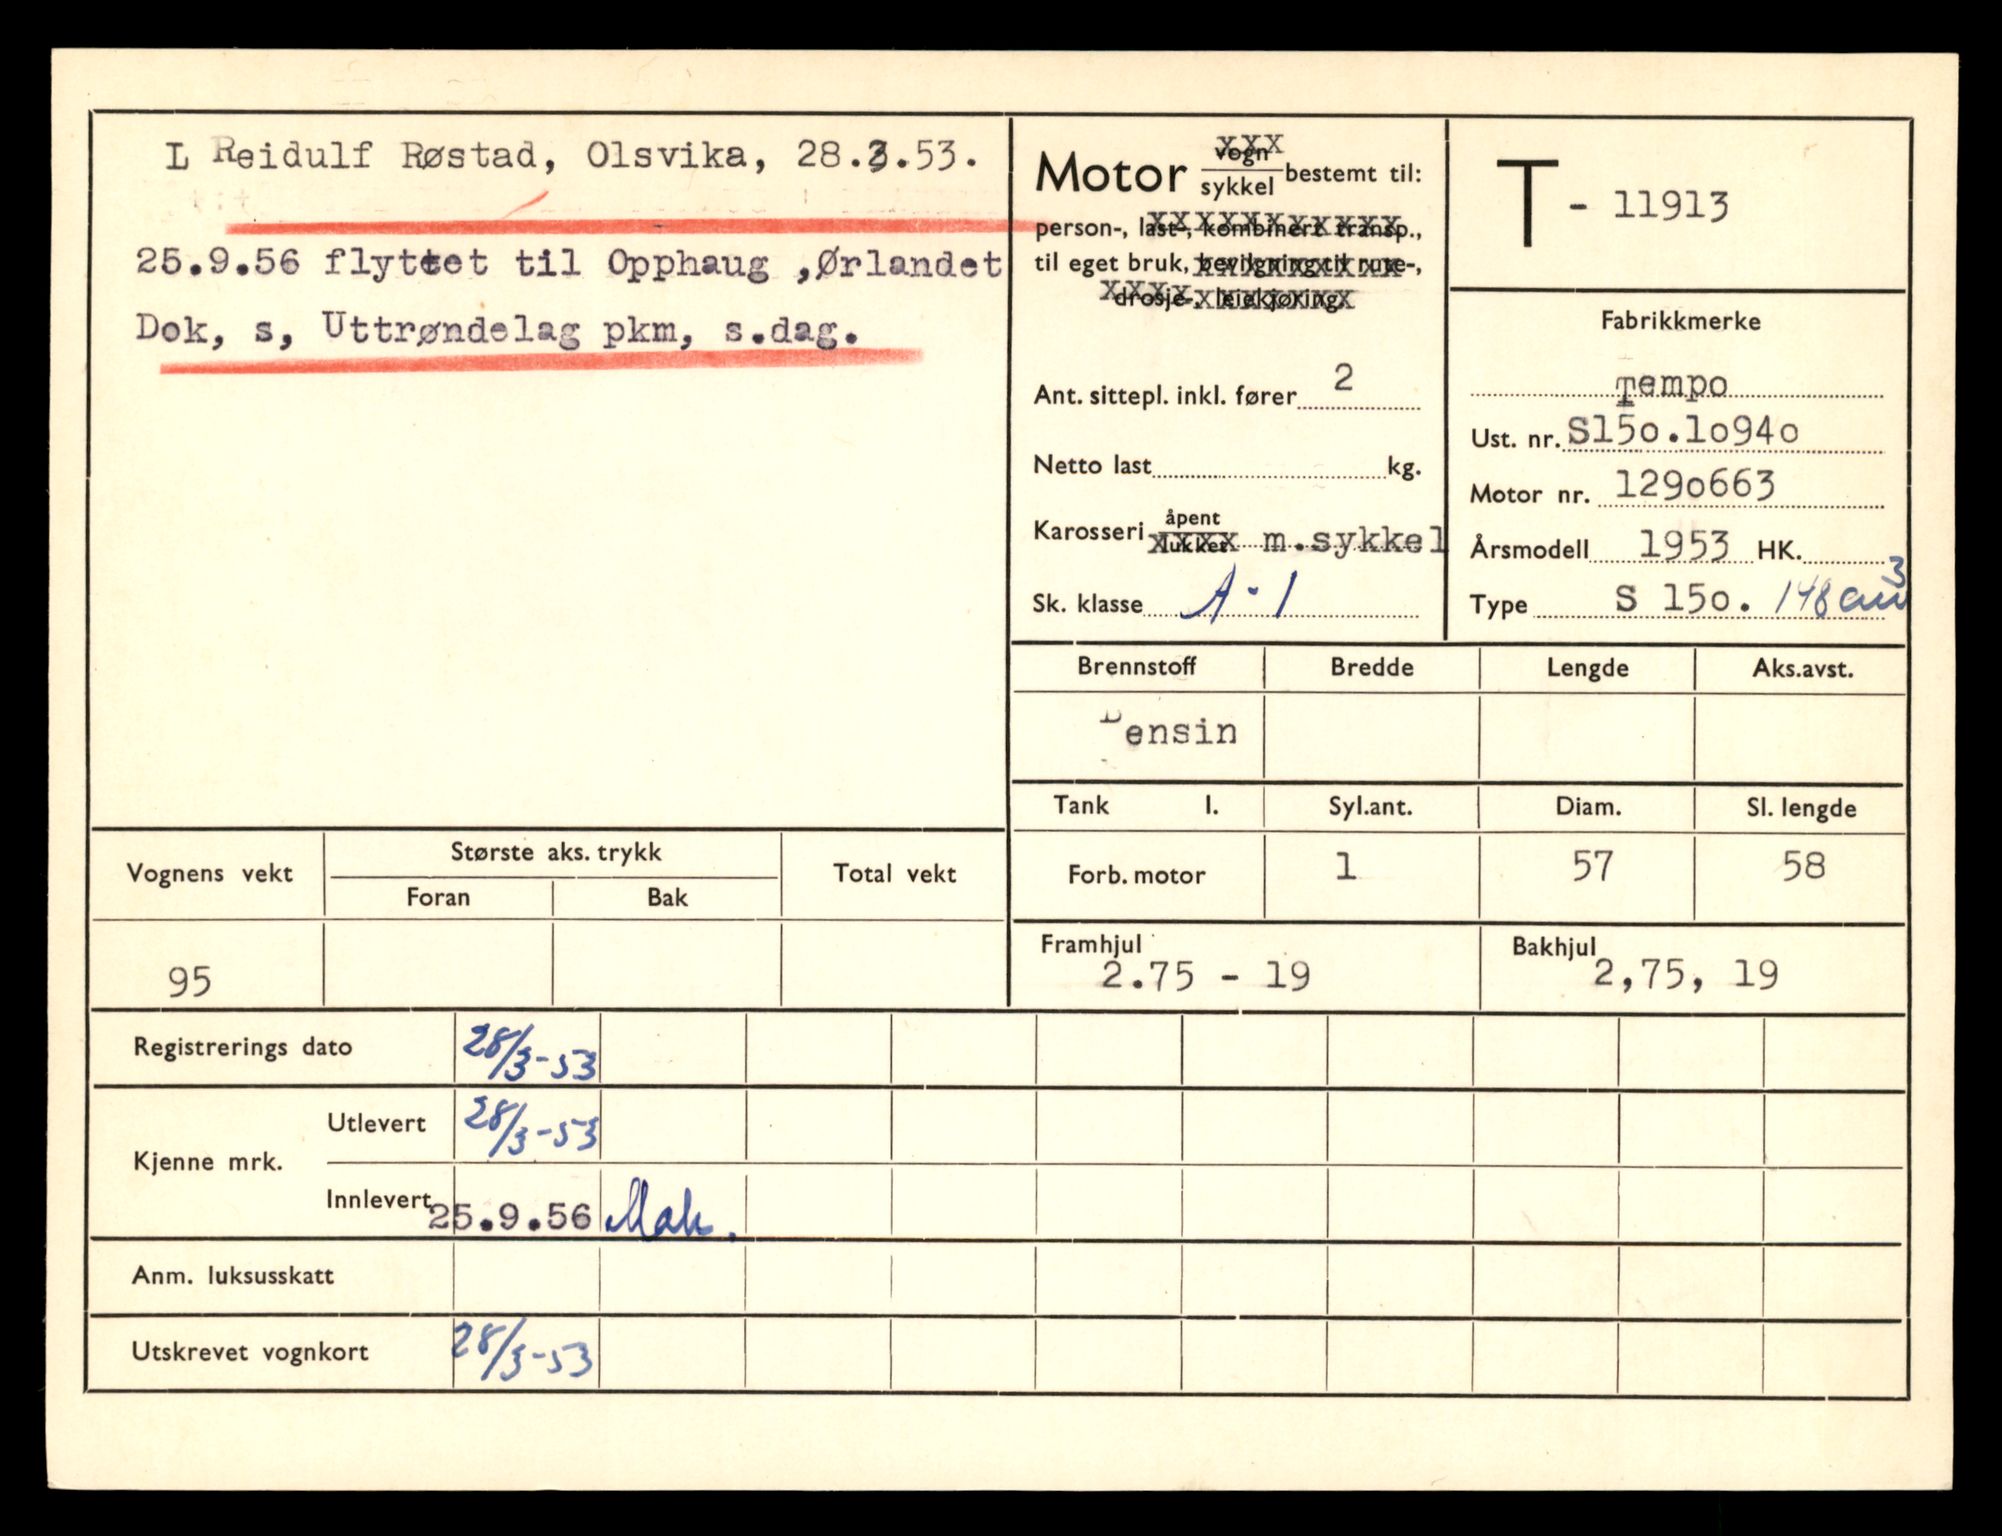 L Reidulf Røstad, Olsvika, 28.3.53.
25.9.56 flyttet til Opphaug ,Ørlandet
Dok, s, Uttrøndelag pkm, s.dag.
Motor vogn xxx
sykkel bestemt til:
person-, last-, kombinert transp.,
til eget bruk, bevilgning til rute-,
drosje-, leiekjøring.
Ant. sittepl. inkl. fører 2
Netto last kg.
Karosseri åpent
lukket xxxx m.sykkel
Sk. klasse A-1
T - 11913
Fabrikkmerke
Tempo
Ust. nr. S15o.1o94o
Motor nr. 129o663
Årsmodell 1953 HK.
Type S 15o. 148 cm3
Brennstoff Bredde Lengde Aks.avst.
Bensin
Tank l. Syl.ant. Diam. Sl. lengde
Forb. motor 1 57 58
Framhjul Bakhjul
2.75 - 19 2,75, 19
Vognens vekt Største aks. trykk Total vekt
Foran Bak
95
Registrerings dato 28/3-53
Kjenne mrk. Utlevert 28/3-53
Innlevert 25.9.56
Anm. luksusskatt
Utskrevet vognkort 28/3-53